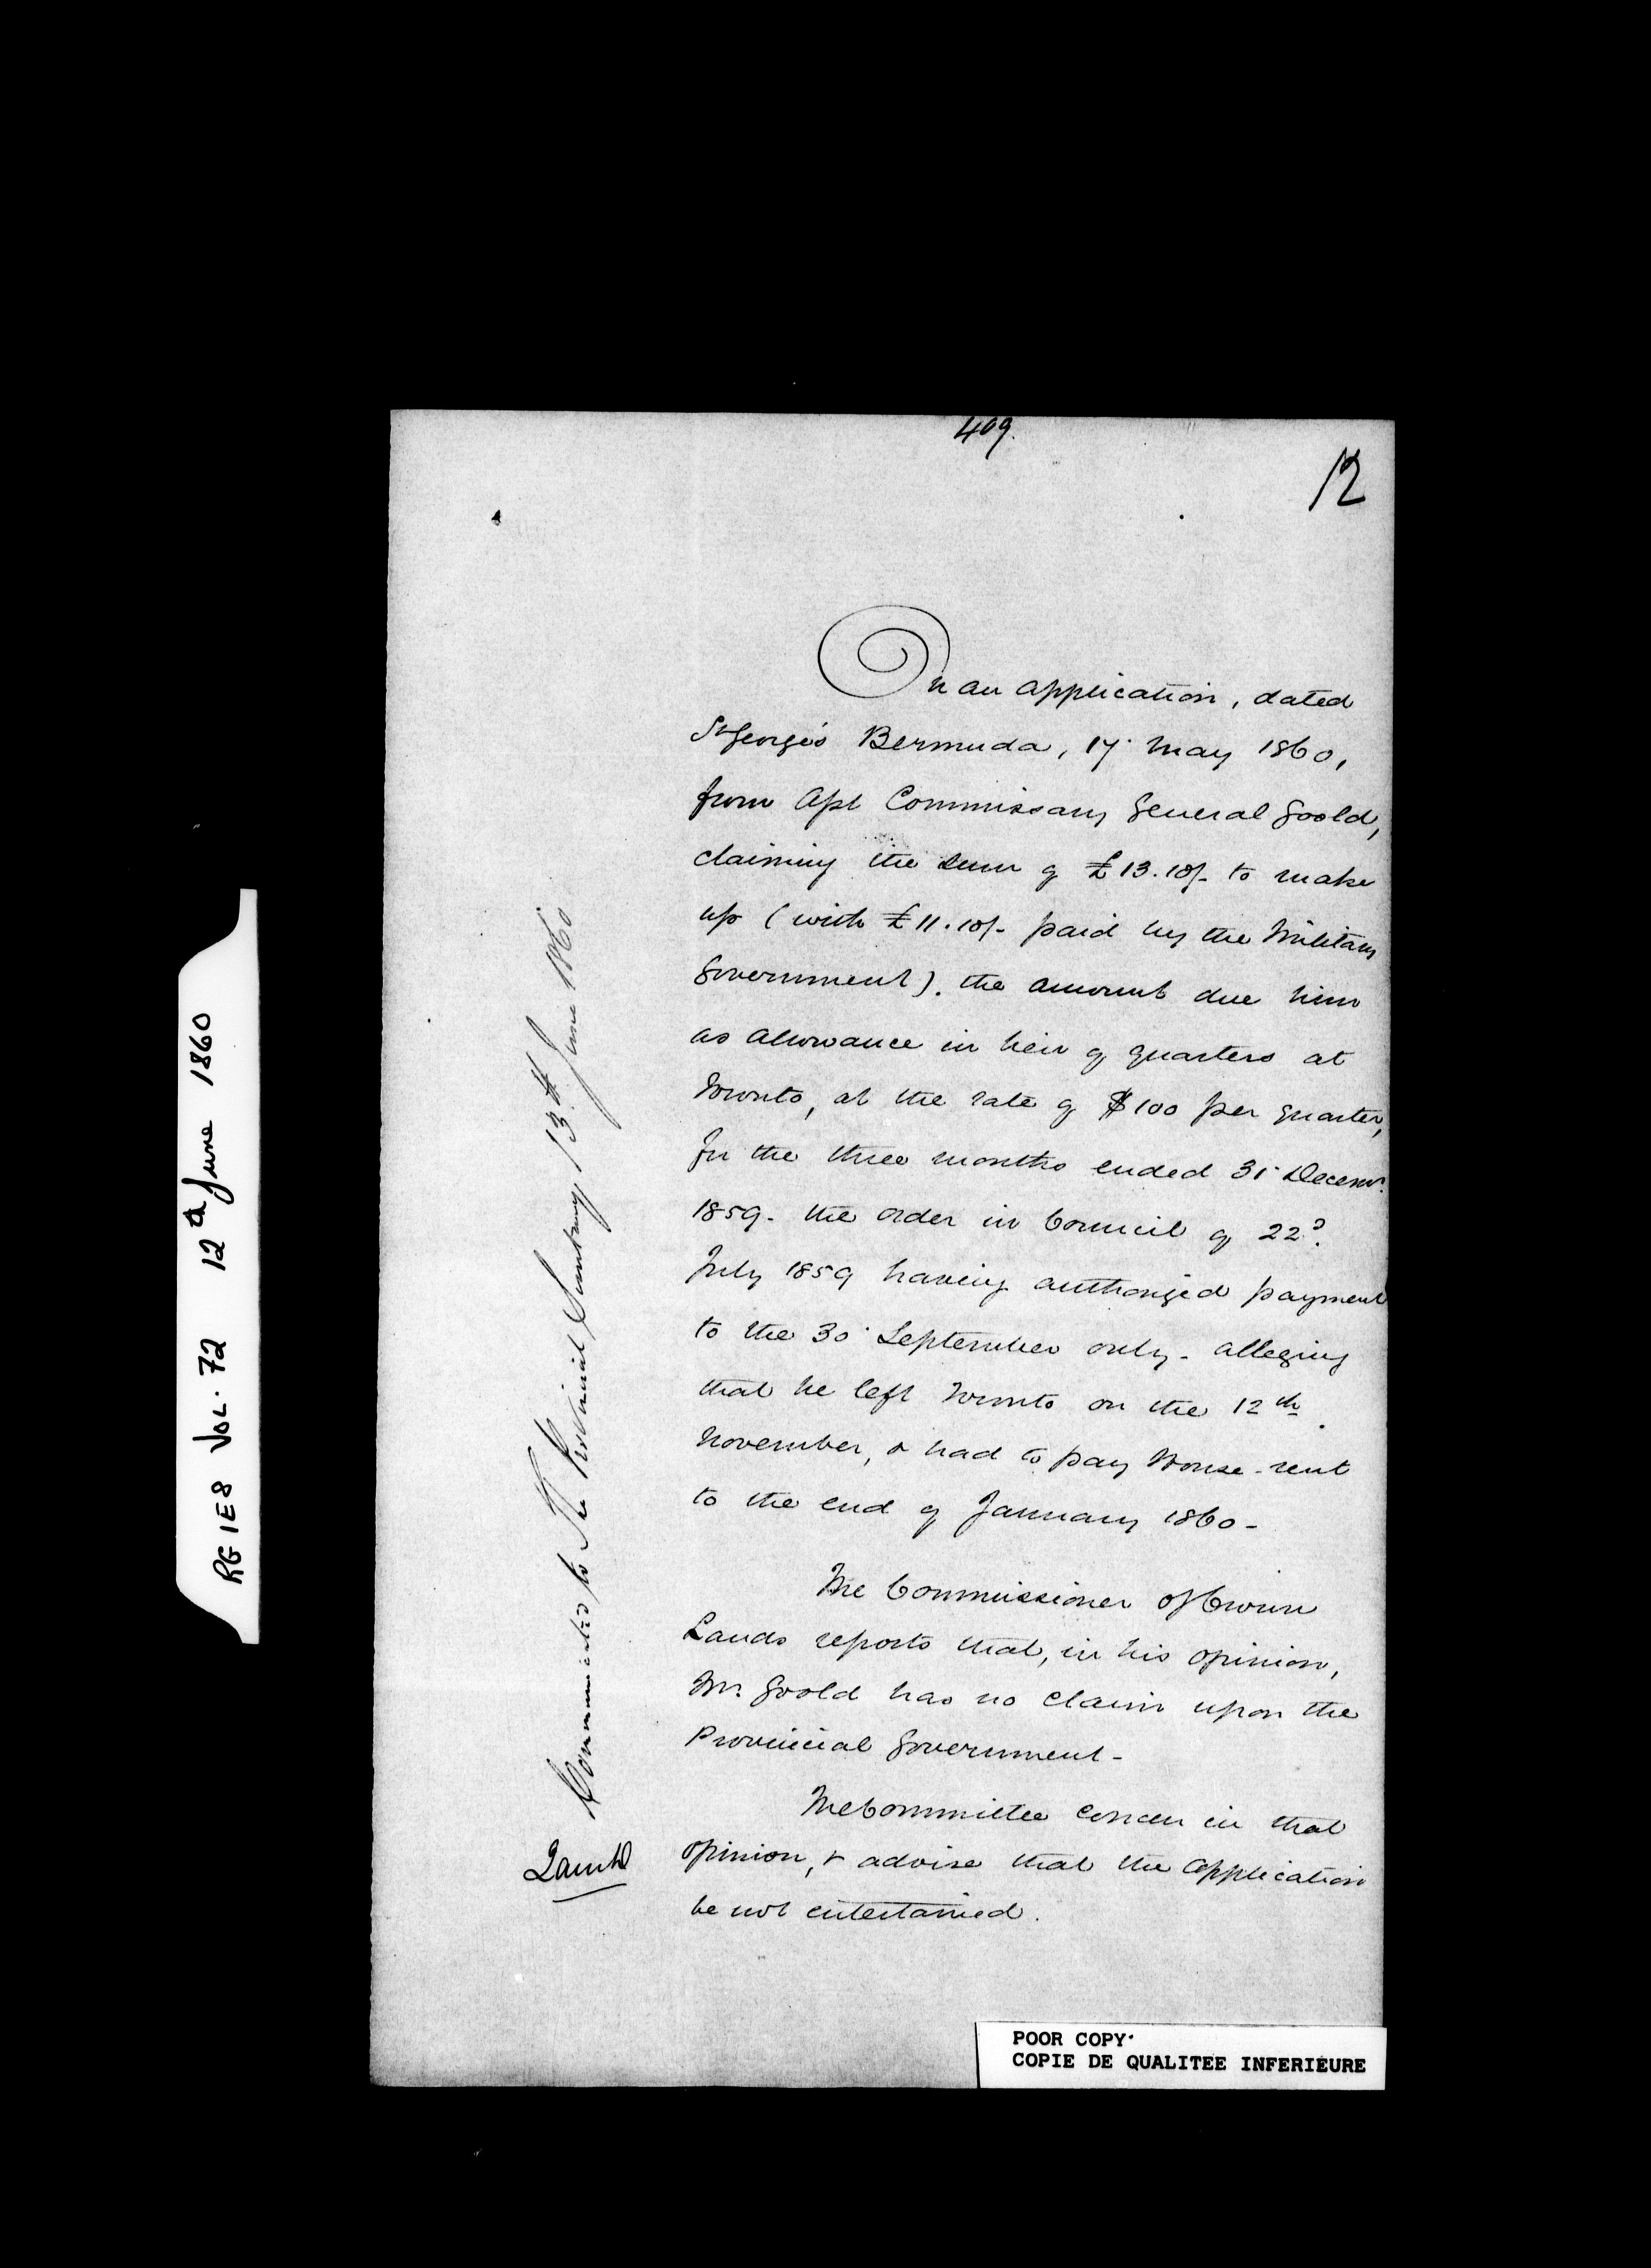 409.
12
On an application, dated
St George's Bermuda, 17 May 1860,
from Asst Commissary General Goold,
claiming the sum of £13.10/- to make
up (with £11.10/- paid by the Military
Government). the amount due him
as allowance in lieu of quarters at
Toronto, at the rate of $100 per quarter,
for the three months ended 31 Decemr.
1859. the order in Council of 22d.
July 1859 having authorized payment
to the 30 September only - alleging
that he left Toronto on the 12th.
November, & had to pay House-rent
to the end of January 1860 -
The Commissioner of Crown
Lands reports that, in his opinion,
Mr. Goold has no claim upon the
Provincial Government -
The Committee concur in that
opinion, & advise that the application
be not entertained.
Communicated to The Provincial Secretary 13th June 1860
RG 1E8 VOL. 72 12th June 1860
POOR COPY
COPIE DE QUALITEE INFERIEURE